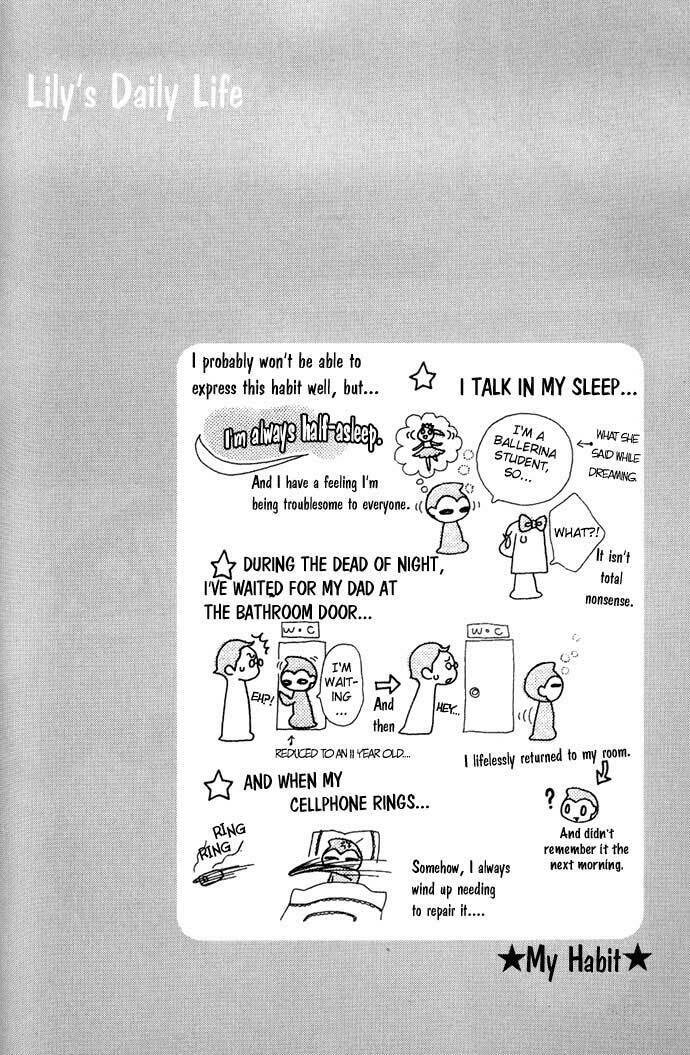 Lily's Daily Life
I probably won't be able to
express this habit well, but...
I'm always half-asleep.
And I have a feeling I'm
being troublesome to everyone.
I TALK IN MY SLEEP...
I'M A
BALLERINA
STUDENT,
SO...
WHAT SHE
SAID WHILE
DREAMING.
WHAT?!
It isn't
total
nonsense.
DURING THE DEAD OF NIGHT,
I'VE WAITED FOR MY DAD AT
THE BATHROOM DOOR...
W•C
EH?!
I'M
WAIT-
ING
...
REDUCED TO AN 11 YEAR OLD...
And
then
W•C
HEY...
I lifelessly returned to my room.
?
And didn't
remember it the
next morning.
AND WHEN MY
CELLPHONE RINGS...
RING
RING
Somehow, I always
wind up needing
to repair it....
★My Habit★